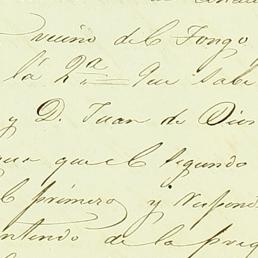 vecino del Tongo
la 2ª Que Sabe
y D. Juan de Dios
que el Segundo
el primero y Respond
ntenido de la preg